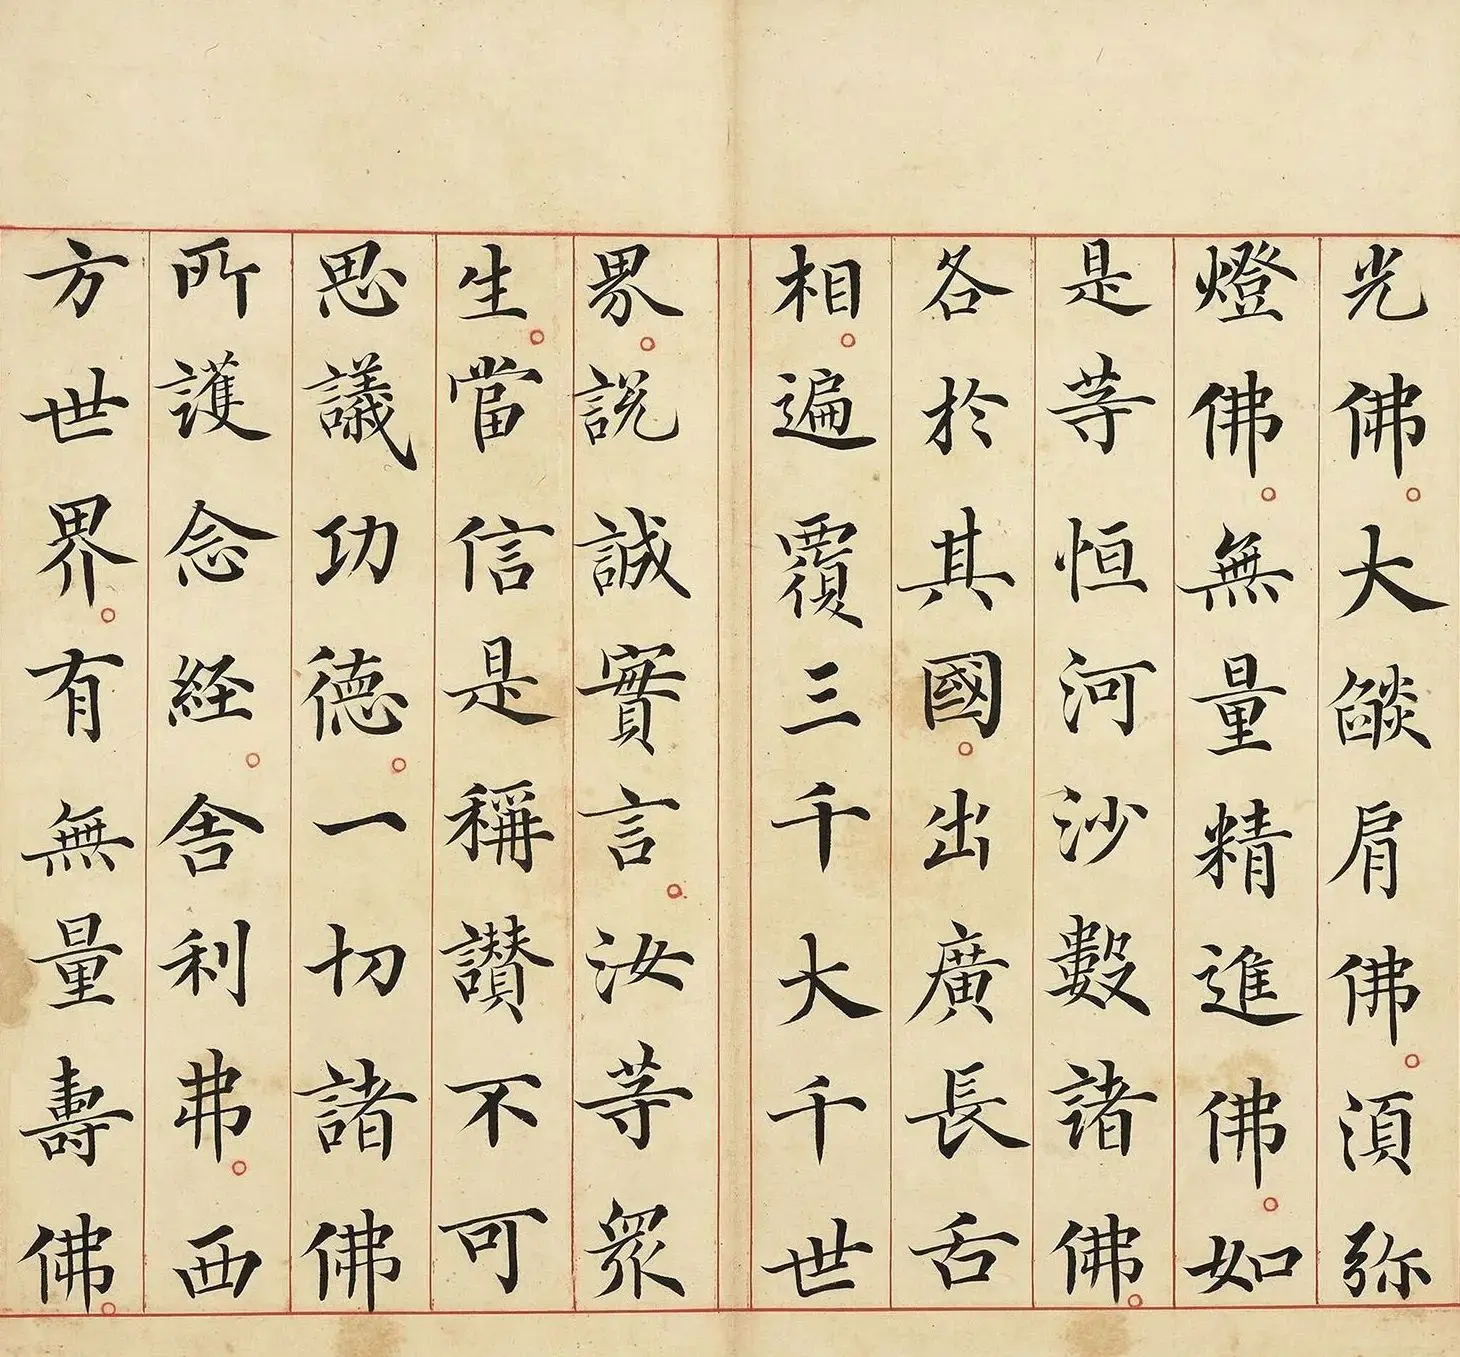 光佛。大燄肩佛。須弥
燈佛。無量精進佛。如
是等恒河沙數諸佛。
各於其國。出廣長舌
相。遍覆三千大千世
界。説誠實言。汝等眾
生。當信是稱讃不可
思議功德。一切諸佛
所護念経。舎利弗。西
方世界。有無量壽佛。